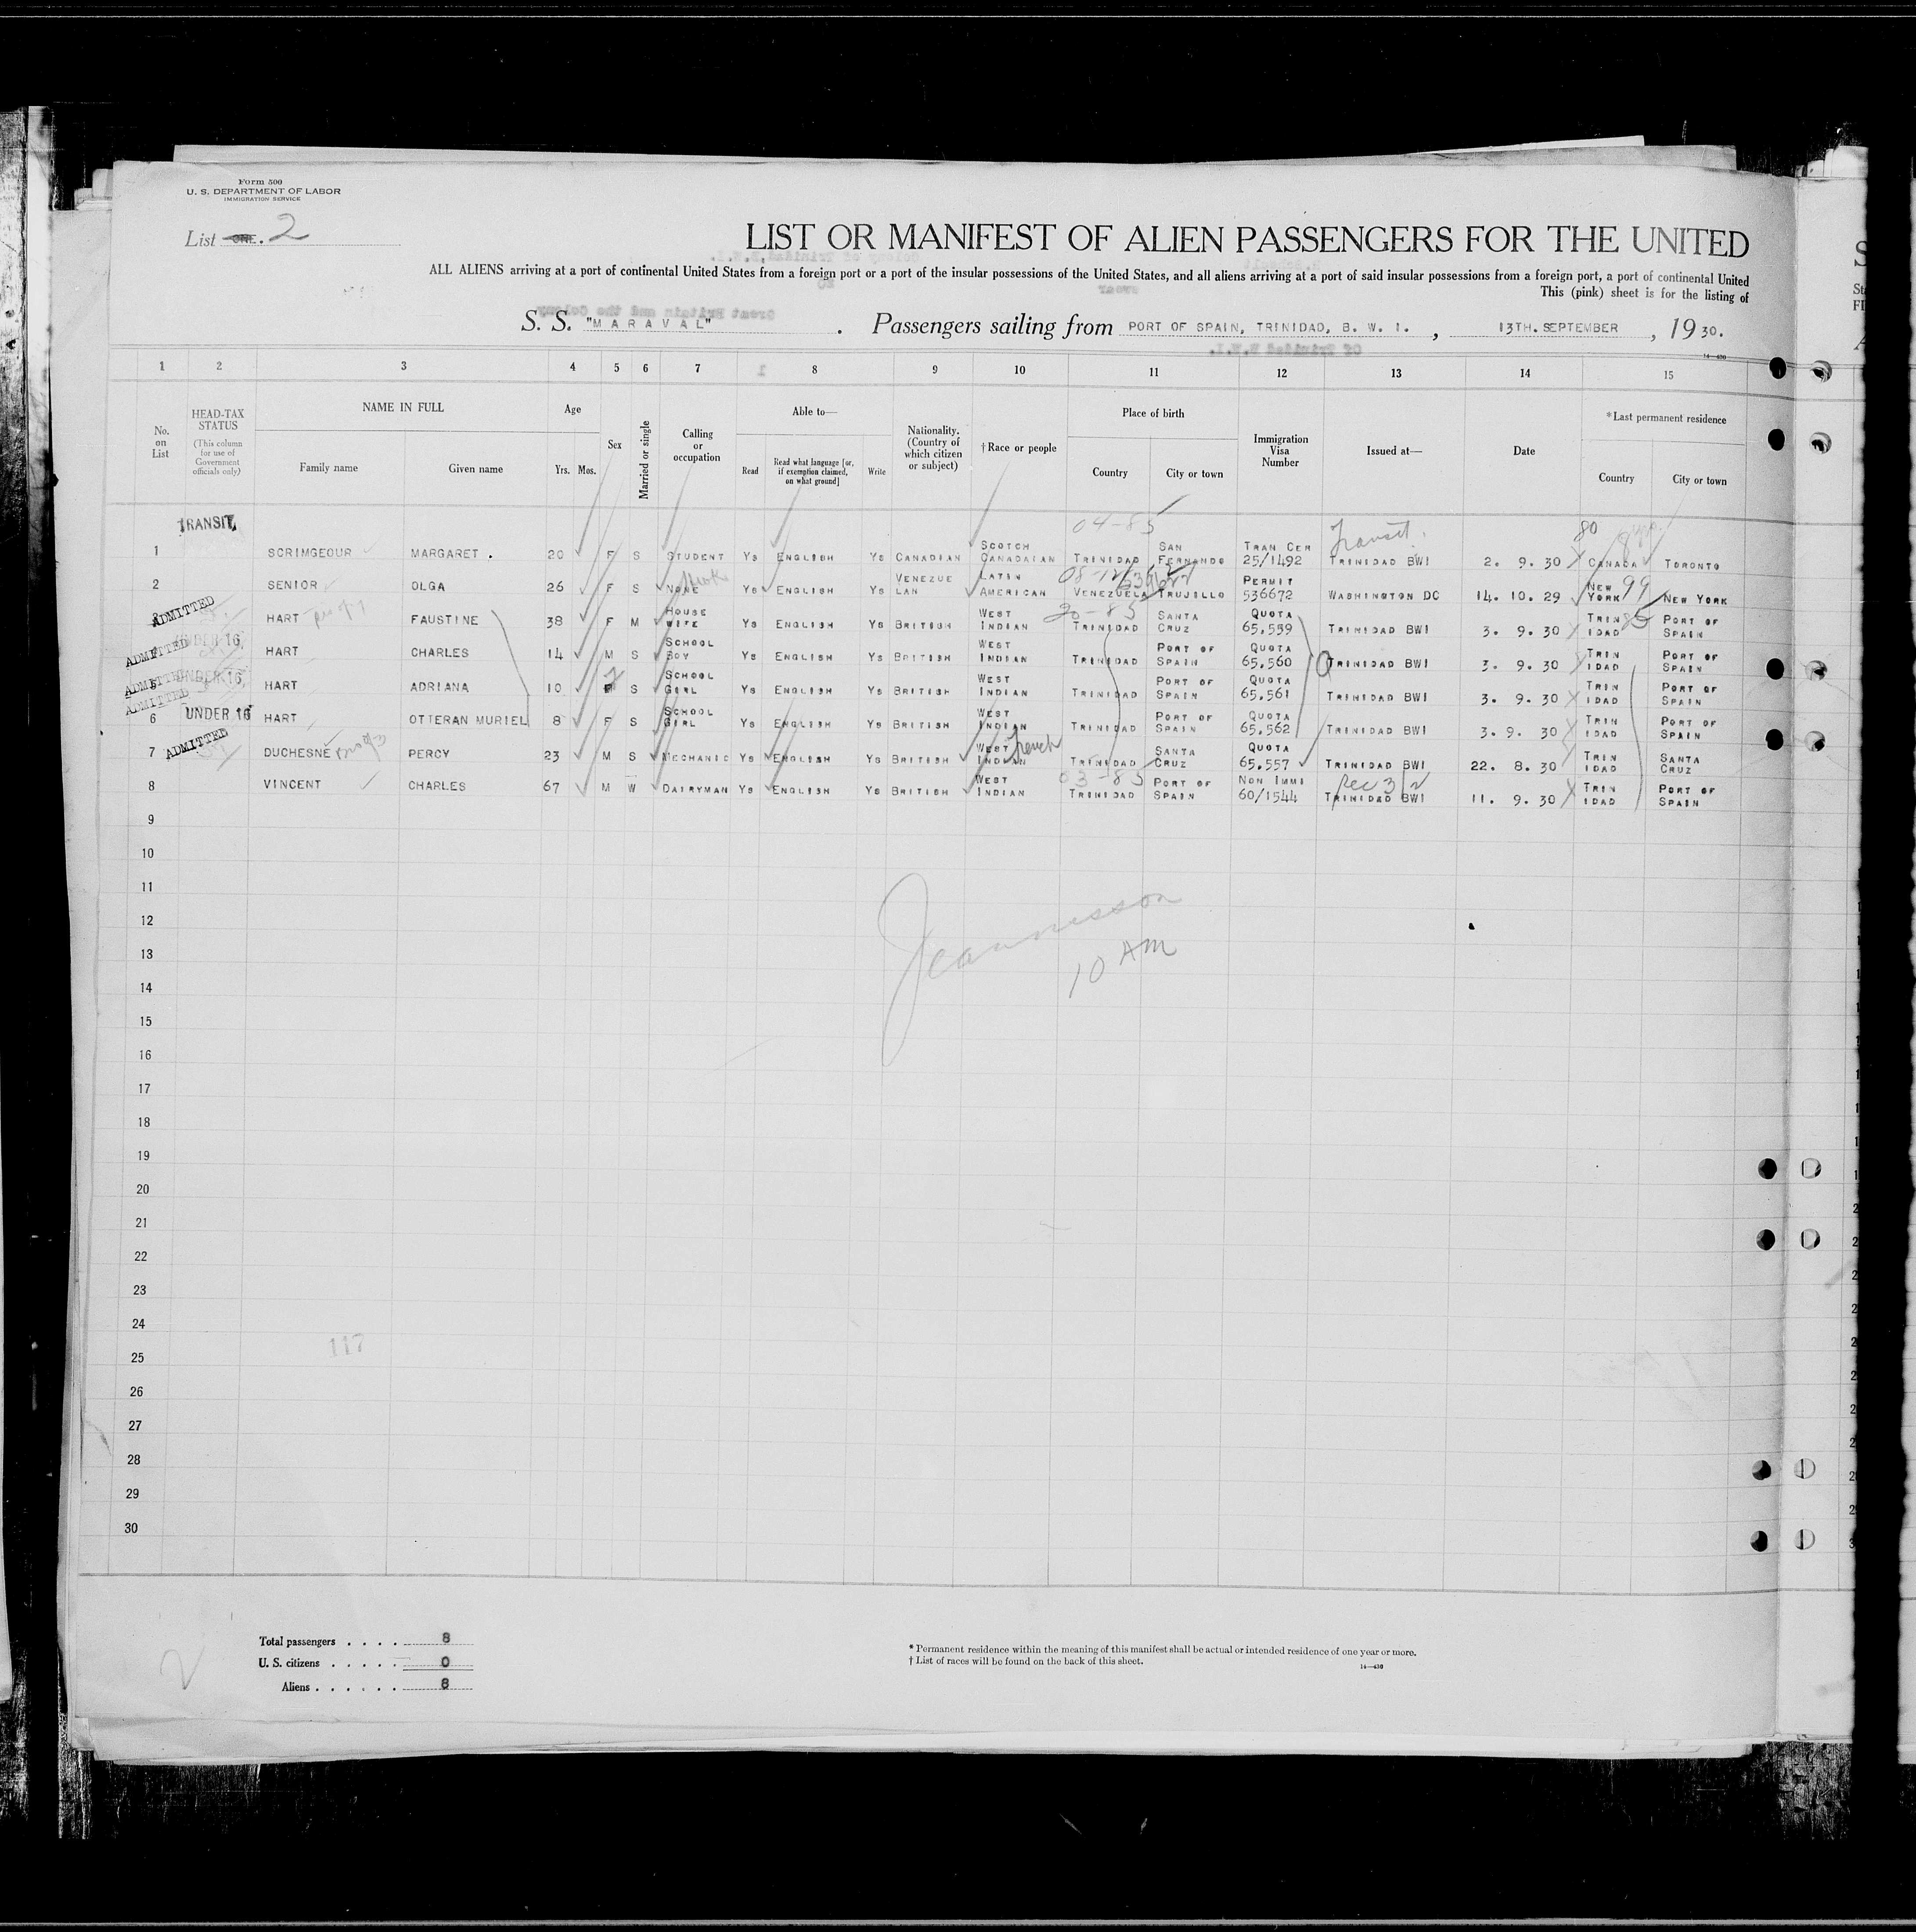 Form 500
U. S. DEPARTMENT OF LABOR
IMMIGRATION SERVICE
List ONE. 2
LIST OR MANIFEST OF ALIEN PASSENGERS FOR THE UNITED
ALL ALIENS arriving at a port of continental United States from a foreign port or a port of the insular possessions of the United States, and all aliens arriving at a port of said insular possessions from a foreign port, a port of continental United
This (pink) sheet is for the listing of
S. S. "MARAVAL" . Passengers sailing from PORT OF SPAIN, TRINIDAD, B. W. I. , 13TH. SEPTEMBER , 19 30.
14—430
1 2 3 4 5 6 7 8 9 10 11 12 13 14 15
No. on List
HEAD-TAX STATUS (This column for use of Government officials only)
NAME IN FULL
Family name Given name
Age
Yrs. Mos.
Sex
Married or single
Calling or occupation
Able to—
Read Read what language [or, if exemption claimed, on what ground] Write
Nationality. (Country of which citizen or subject)
†Race or people
Place of birth
Country City or town
Immigration Visa Number
Issued at—
Date
*Last permanent residence
Country City or town
TRANSIT 04-85 Transit 80
1 SCRIMGEOUR MARGARET . 20 F S STUDENT YS ENGLISH YS CANADIAN SCOTCH CANADAIAN TRINIDAD SAN FERNANDO TRAN CER 25/1492 TRINIDAD BWI 2. 9. 30 CANADA TORONTO
2 SENIOR OLGA 26 F S NONE YS ENGLISH YS VENEZUE LAN LATIN AMERICAN VENEZUELA TRUJILLO PERMIT 536672 WASHINGTON DC 14. 10. 29 NEW YORK 99 NEW YORK
ADMITTED HART FAUSTINE 38 F M HOUSE WIFE YS ENGLISH YS BRITISH WEST INDIAN 20-85 TRINIDAD SANTA CRUZ QUOTA 65,559 TRINIDAD BWI 3. 9. 30 TRIN IDAD 85 PORT OF SPAIN
ADMITTED UNDER 16 HART CHARLES 14 M S SCHOOL BOY YS ENGLISH YS BRITISH WEST INDIAN TRINIDAD PORT OF SPAIN QUOTA 65,560 TRINIDAD BWI 3. 9. 30 TRIN IDAD PORT OF SPAIN
ADMITTED UNDER 16 HART ADRIANA 10 F S SCHOOL GIRL YS ENGLISH YS BRITISH WEST INDIAN TRINIDAD PORT OF SPAIN QUOTA 65,561 TRINIDAD BWI 3. 9. 30 TRIN IDAD PORT OF SPAIN
ADMITTED 6 UNDER 16 HART OTTERAN MURIEL 8 F S SCHOOL GIRL YS ENGLISH YS BRITISH WEST INDIAN TRINIDAD PORT OF SPAIN QUOTA 65,562 TRINIDAD BWI 3. 9. 30 TRIN IDAD PORT OF SPAIN
7 ADMITTED DUCHESNE PERCY 23 M S MECHANIC YS ENGLISH YS BRITISH WEST INDIAN French TRINIDAD SANTA CRUZ QUOTA 65,557 TRINIDAD BWI 22. 8. 30 TRIN IDAD SANTA CRUZ
8 VINCENT CHARLES 67 M W DAIRYMAN YS ENGLISH YS BRITISH WEST INDIAN 03-85 TRINIDAD PORT OF SPAIN NON IMMI 60/1544 Rec 3/2 TRINIDAD BWI 11. 9. 30 TRIN IDAD PORT OF SPAIN
9
10
11
12
13
10 AM
14
15
16
17
18
19
20
21
22
23
24
117
25
26
27
28
29
30
Total passengers . . . . 8
U. S. citizens . . . . . 0
Aliens . . . . . . 8
2
* Permanent residence within the meaning of this manifest shall be actual or intended residence of one year or more.
† List of races will be found on the back of this sheet.
14—430